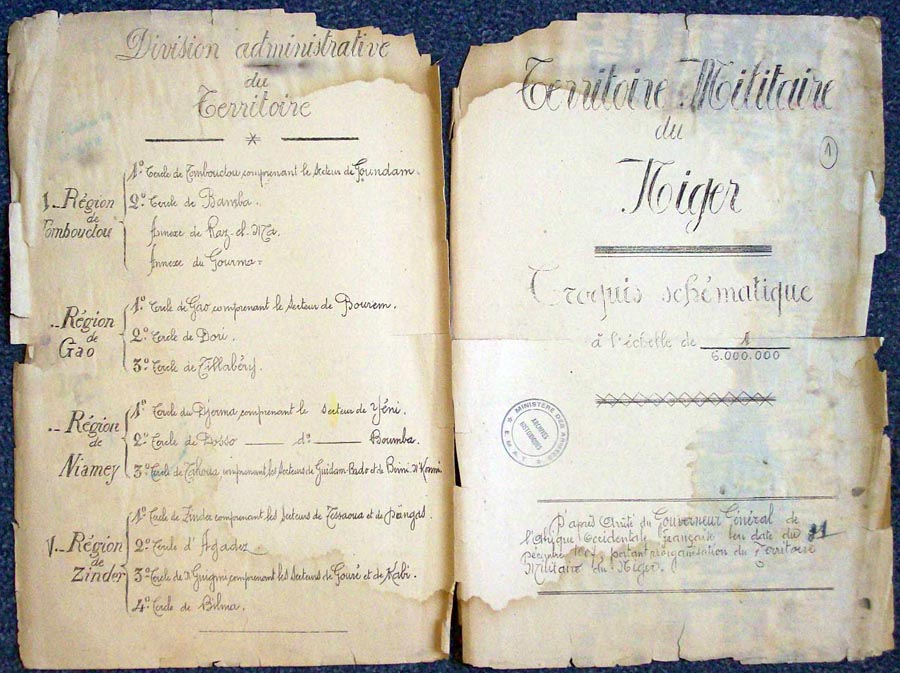 Division administrative
du
Territoire
1._ Région
de
Tombouctou
1º Cercle de Tombouctou comprenant le secteur de Goundam.
2º Cercle de Bamba.
Annexe de Raz-el-Ma.
Annexe du Gourma.
.._ Région
de
Gao
1º Cercle de Gao comprenant le secteur de Bourem.
2º Cercle de Dori.
3º Cercle de Tillabéry.
.._ Région
de
Niamey
1º Cercle du Djerma comprenant le secteur de Yéni.
2º Cercle de Dosso ___ dº ___ Boumba.
3º Cercle de Tahoua comprenant les secteurs de Guidam-Bado et de Birni-N'Konni
V._ Région
de
Zinder
1º Cercle de Zinder comprenant les secteurs de Tessaoua et de
2º Cercle d'Agadez
3º Cercle de N'Guigmi comprenant les secteurs de Gouré et de
4º Cercle de Bilma.
Territoire Militaire
du
Niger
1
Croquis schématique
à l'échelle de 1
6.000.000
MINISTERE DES ARMEES
ARCHIVES
HISTORIQUES
D'après Arrêté du Gouverneur Général de
l'Afrique Occidentale française en date du 31
Décembre portant réorganisation du Territoire
Militaire du Niger.